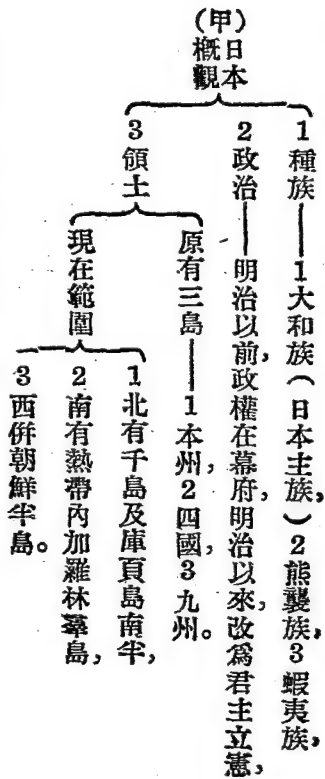 (甲)
日本
概觀
1種族——1大和族(日本主族,)2熊襲族,3蝦夷族,
2政治——明治以前,政權在幕府,明治以來,改爲君主立憲,
3領土
原有三島——1本州,2四國,3九州。
現在範圍
1北有千島及庫頁島南半,
2南有熱帶內加羅林羣島,
3西併朝鮮半島。